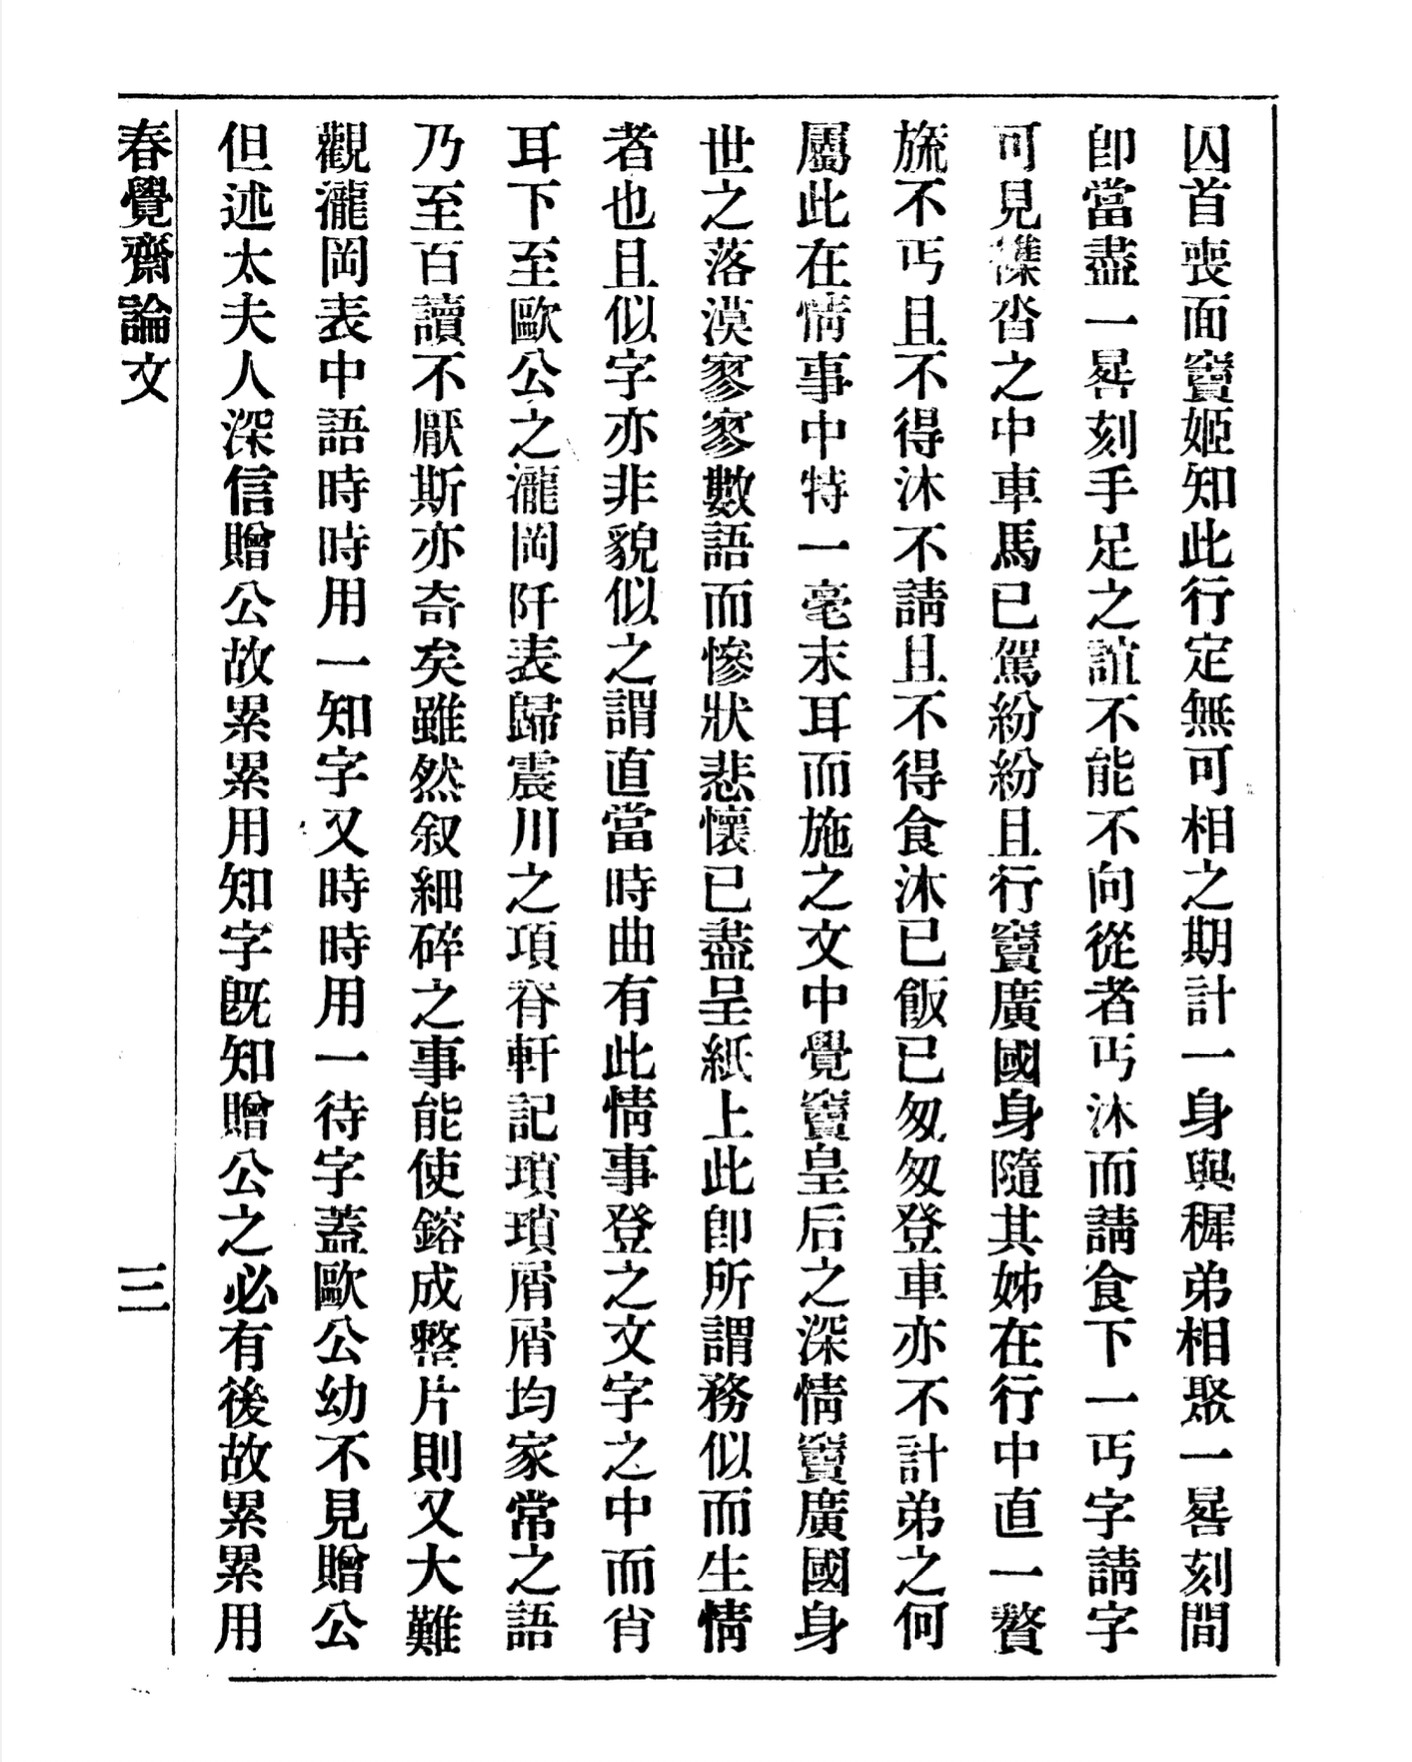 囚首喪面竇姬知此行定無可相之期計一身與穉弟相聚一晷刻間
卽當盡一晷刻手足之誼不能不向從者丐沐而請食下一丐字請字
可見襍沓之中車馬已駕紛紛且行竇廣國身隨其姊在行中直一贅
旒不丐且不得沐不請且不得食沐已飯已匆匆登車亦不計弟之何
屬此在情事中特一毫末耳而施之文中覺竇皇后之深情竇廣國身
世之落漠寥寥數語而慘狀悲懷已盡呈紙上此卽所謂務似而生情
者也且似字亦非貌似之謂直當時曲有此情事登之文字之中而肖
耳下至歐公之瀧岡阡表歸震川之項脊軒記瑣瑣屑屑均家常之語
乃至百讀不厭斯亦奇矣雖然叙細碎之事能使鎔成整片則又大難
觀瀧岡表中語時時用一知字又時時用一待字蓋歐公幼不見贈公
但述太夫人深信贈公故累累用知字旣知贈公之必有後故累累用
春覺齋論文
三